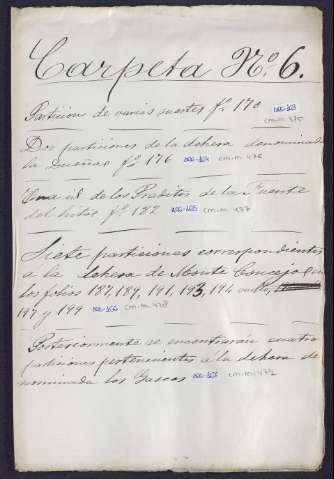 Carpeta Nº 6.
Particion de varias suertes fº 170
cm-m 475
Dos particiones de la dehesa denominada
la Dueñas fº 176 cm-m 476
Una id de los Prados de la Fuente
del fº 182 cm-m 477
Siete particiones correspondientes
a la dehesa de Monte Concejo
los folios 187, 189, 191, 193, 194 vuelto,
197 y 199 cm-m 478
Posteriormente se encontrarán cuatro
particiones pertenecientes a la dehesa de
nominada los Gascos cm-m 479